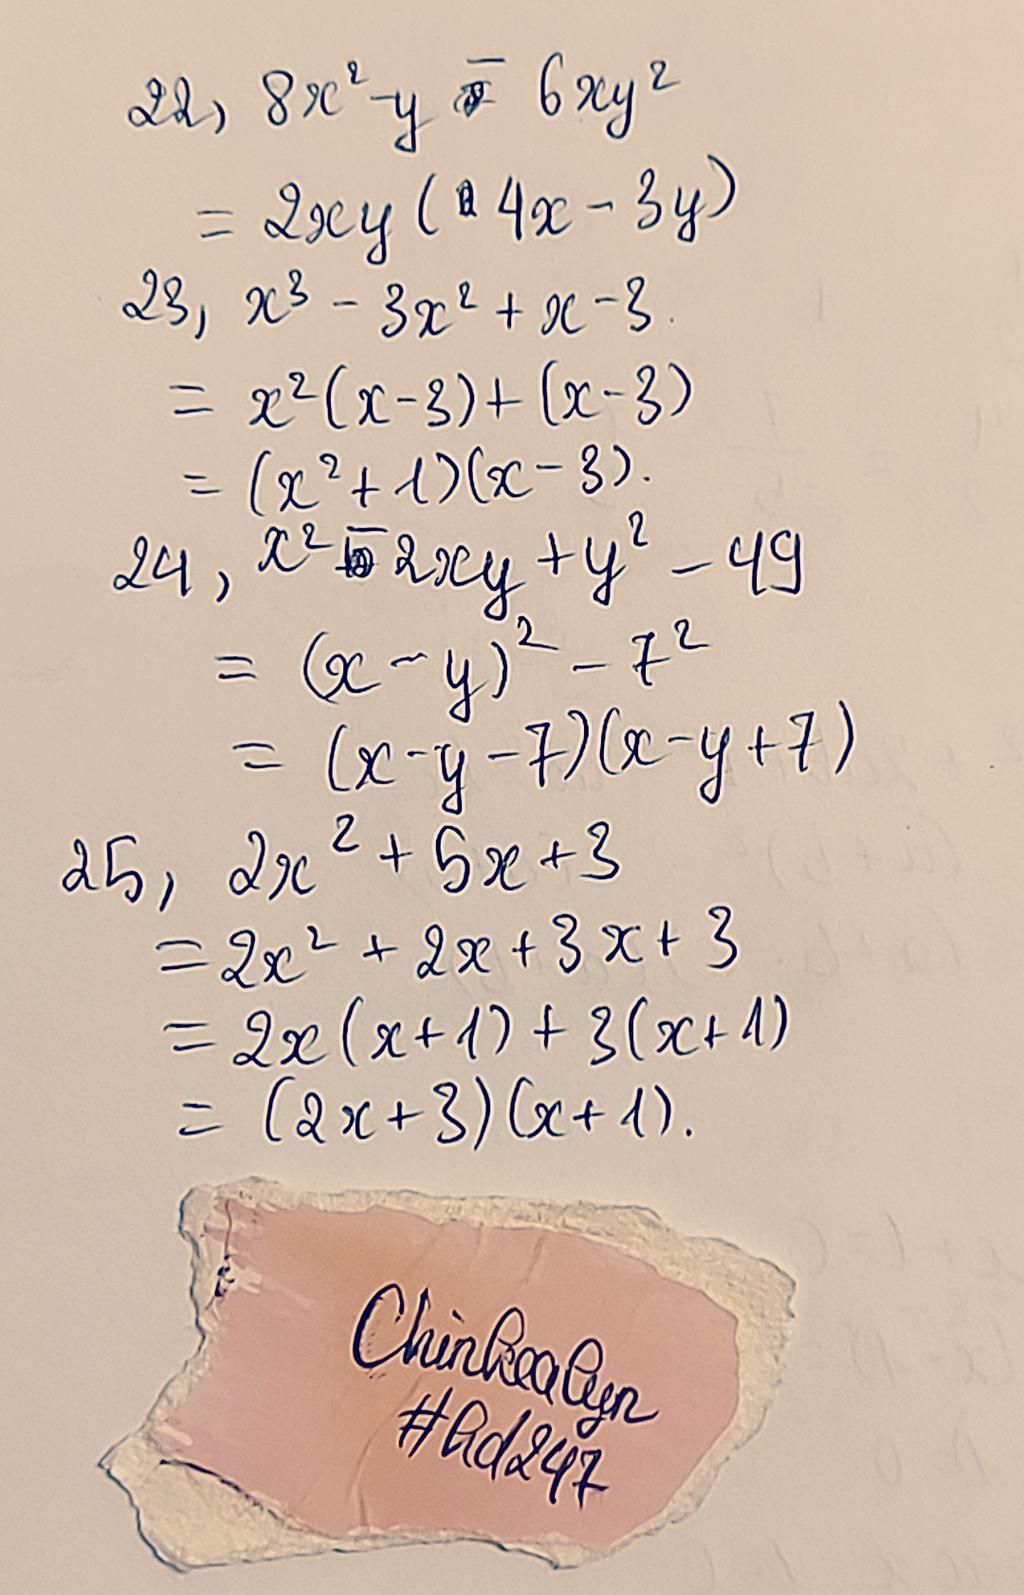 22, 8x²-y - 6xy²
= 2xy (4x - 3y)
23, x³ - 3x² + x - 3.
= x²(x-3) + (x-3)
= (x²+1)(x-3).
24, x² - 2xy + y² - 49
= (x - y)² - 7²
= (x-y-7)(x-y+7)
25, 2x² + 5x + 3
= 2x² + 2x + 3x + 3
= 2x(x+1) + 3(x+1)
= (2x+3)(x+1).
Chinhealyn
#hd247